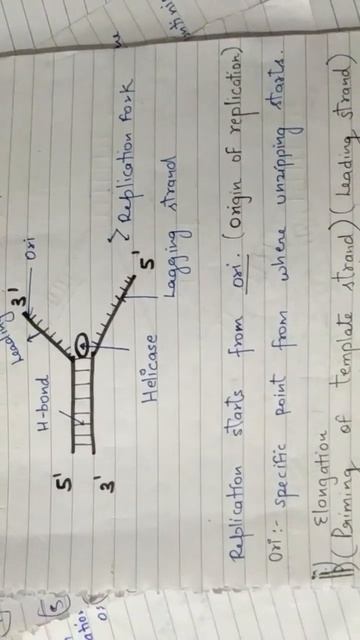 Leading
3'
Ori
H-bond
5'
3'
Helicase
5'
Replication fork
Lagging strand
Replication starts from ori. (Origin of replication)
Ori:- specific point from where unzipping starts.
ii) Elongation
(Priming of template strand) (Leading strand)